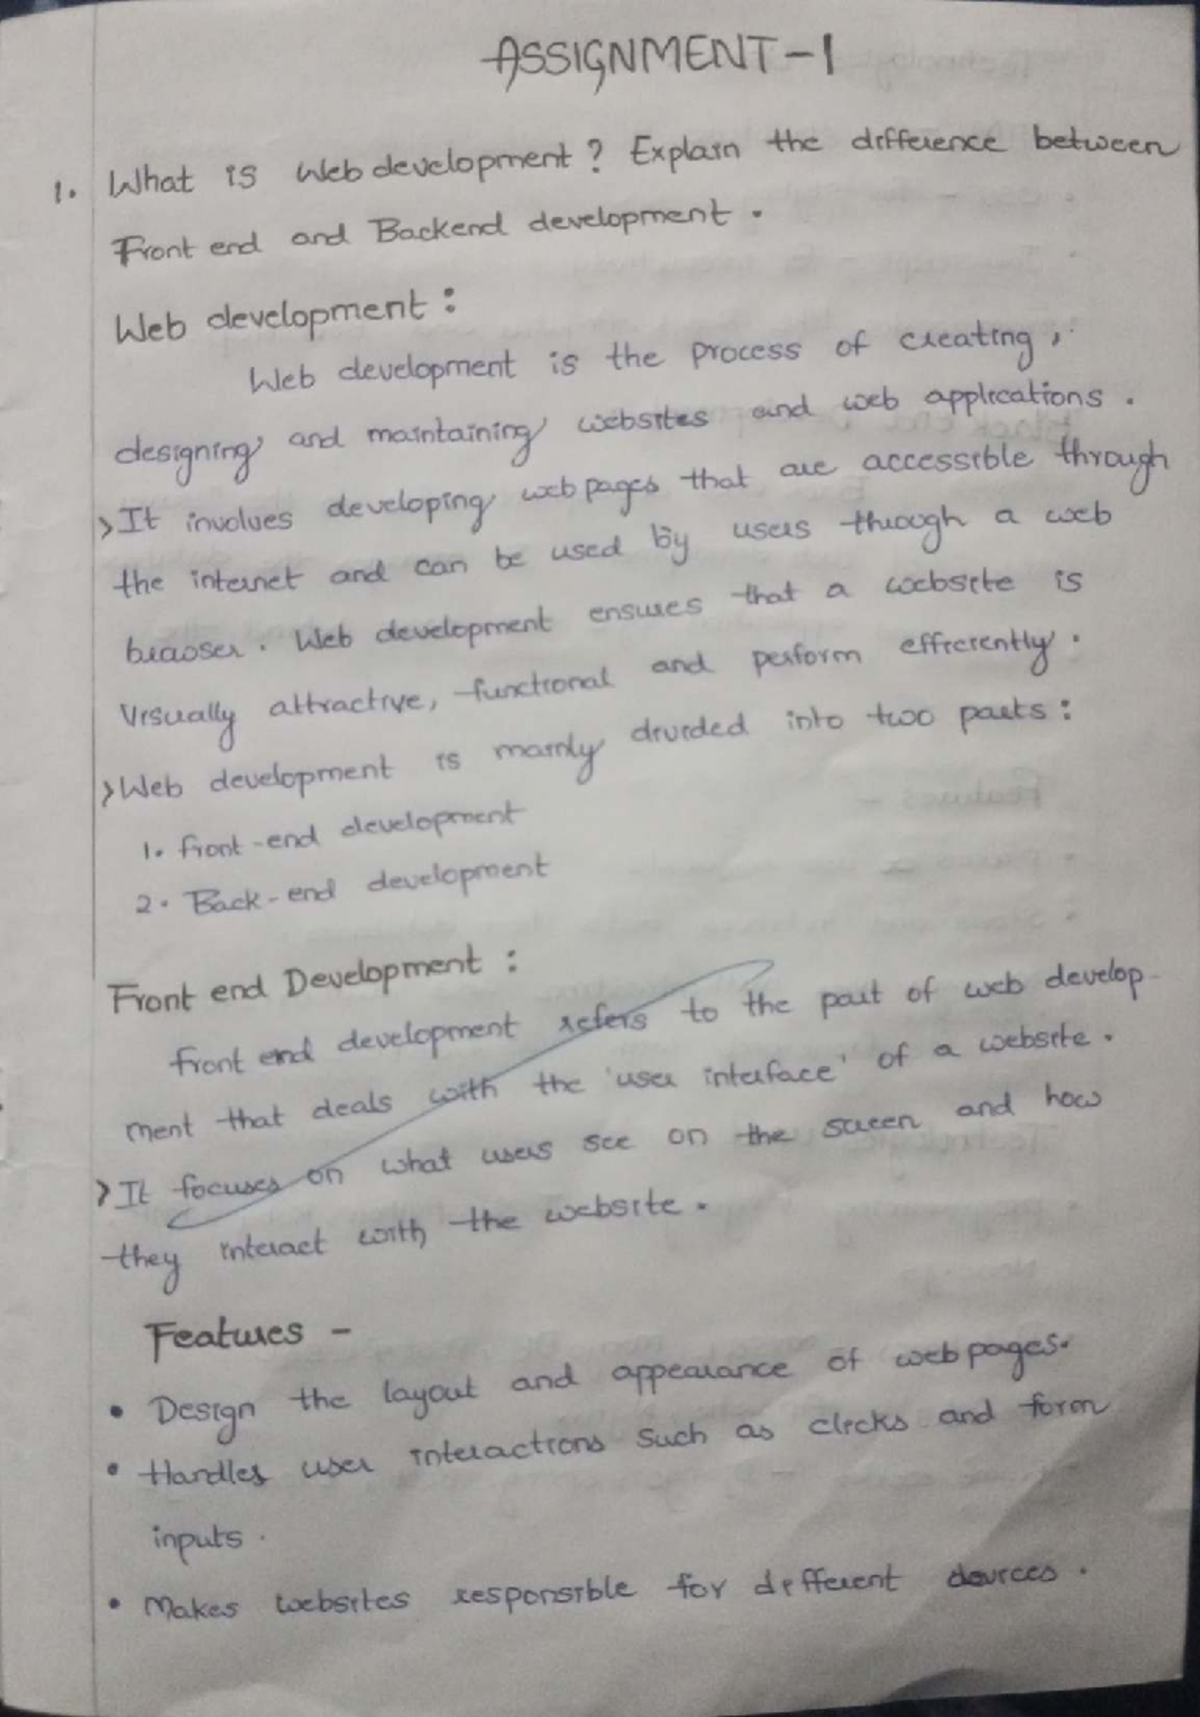 ASSIGNMENT-1
1. What is Web development? Explain the difference between
Front end and Backend development.
Web development:
Web development is the process of creating,
designing and maintaining websites and web applications.
> It involves developing web pages that are accessible through
the internet and can be used by users through a web
braoser. Web development ensures that a website is
Visually attractive, functional and perform efficiently.
> Web development is mainly divided into two parts:
1. front-end development
2. Back-end development
Front end Development:
front end development refers to the part of web develop-
ment that deals with the 'user interface' of a website.
> It focuses on what users see on the screen and how
they interact with the website.
Features -
• Design the layout and appearance of web pages.
• Handles user interactions such as clicks and form
inputs.
• Makes websites responsible for different devices.